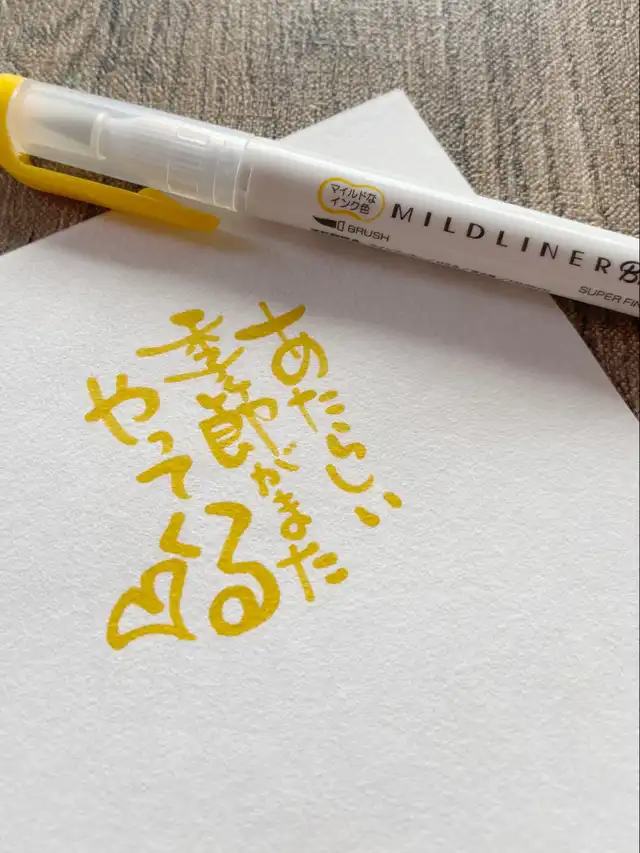 マイルドな
インク色
BRUSH
MILDLINER
SUPER FIN
あたらしい
季節がまた
やってくる